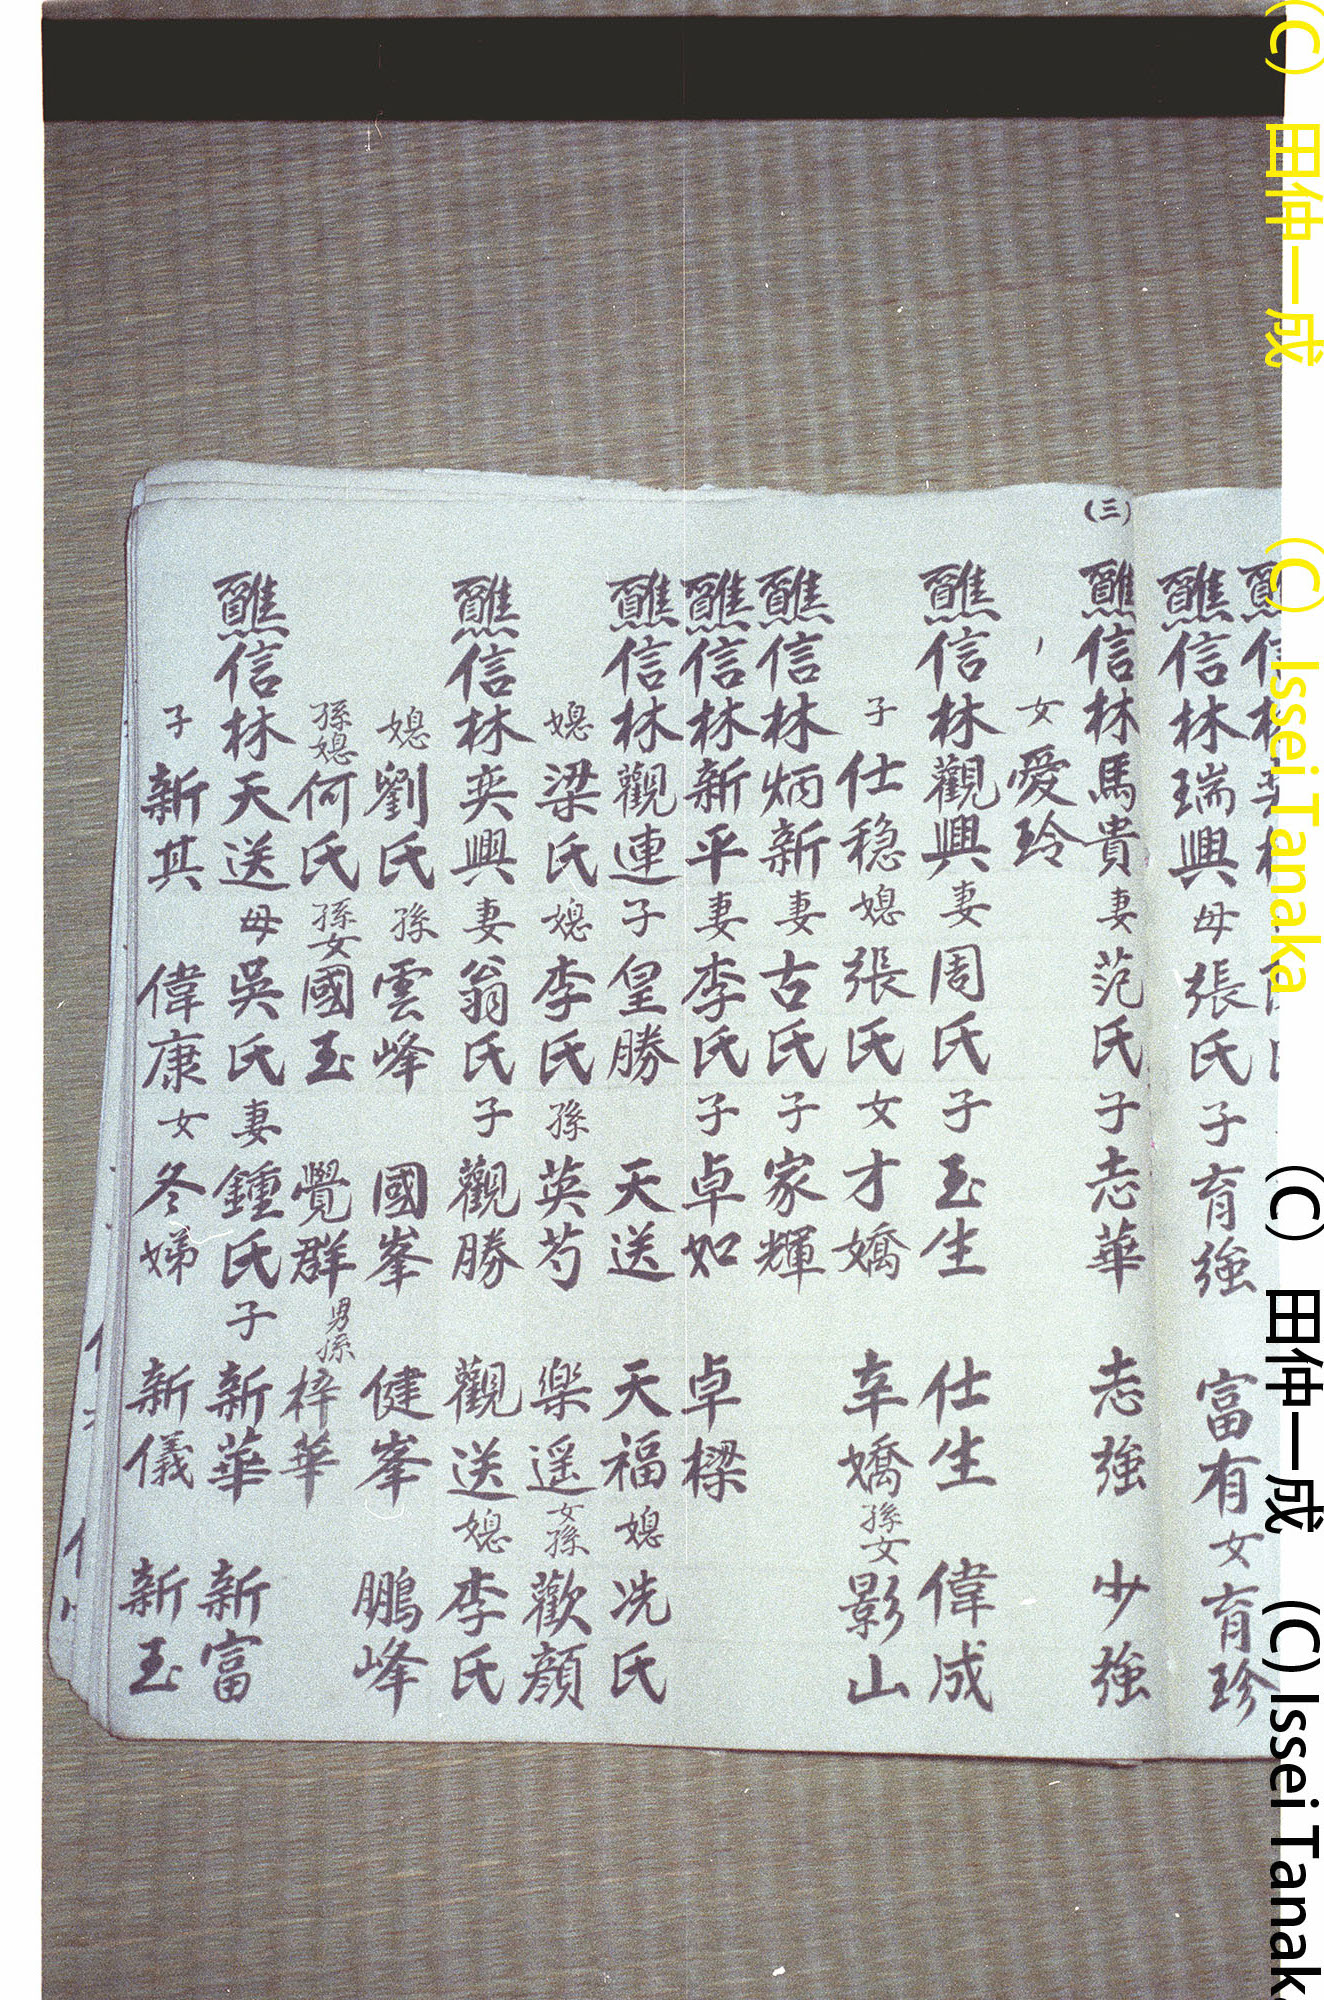 醮信林瑞興母張氏子育強 富有女育珍
(三)
醮信林馬貴妻范氏子志華 志強 少強
女愛玲
醮信林觀興妻周氏子玉生 仕生 偉成
子仕稳媳張氏女才嬌 辛嬌孫女影山
醮信林炳新妻古氏子家輝
醮信林新平妻李氏子卓如 卓樑
醮信林觀連子皇勝 天送 天福媳冼氏
媳梁氏媳李氏孫英芍 樂遥女孫歡顔
醮信林奕興妻翁氏子觀勝 觀送媳李氏
媳劉氏孫雲峰 國峯 健峯 鵬峰
孫媳何氏孫女國玉 覺群男孫梓華
醮信林天送母吳氏妻鍾氏子新華 新富
子新其 偉康女冬娣 新儀 新玉
(C) 田仲一成 (C) Issei Tanaka (C) 田仲一成 (C) Issei Tanaka